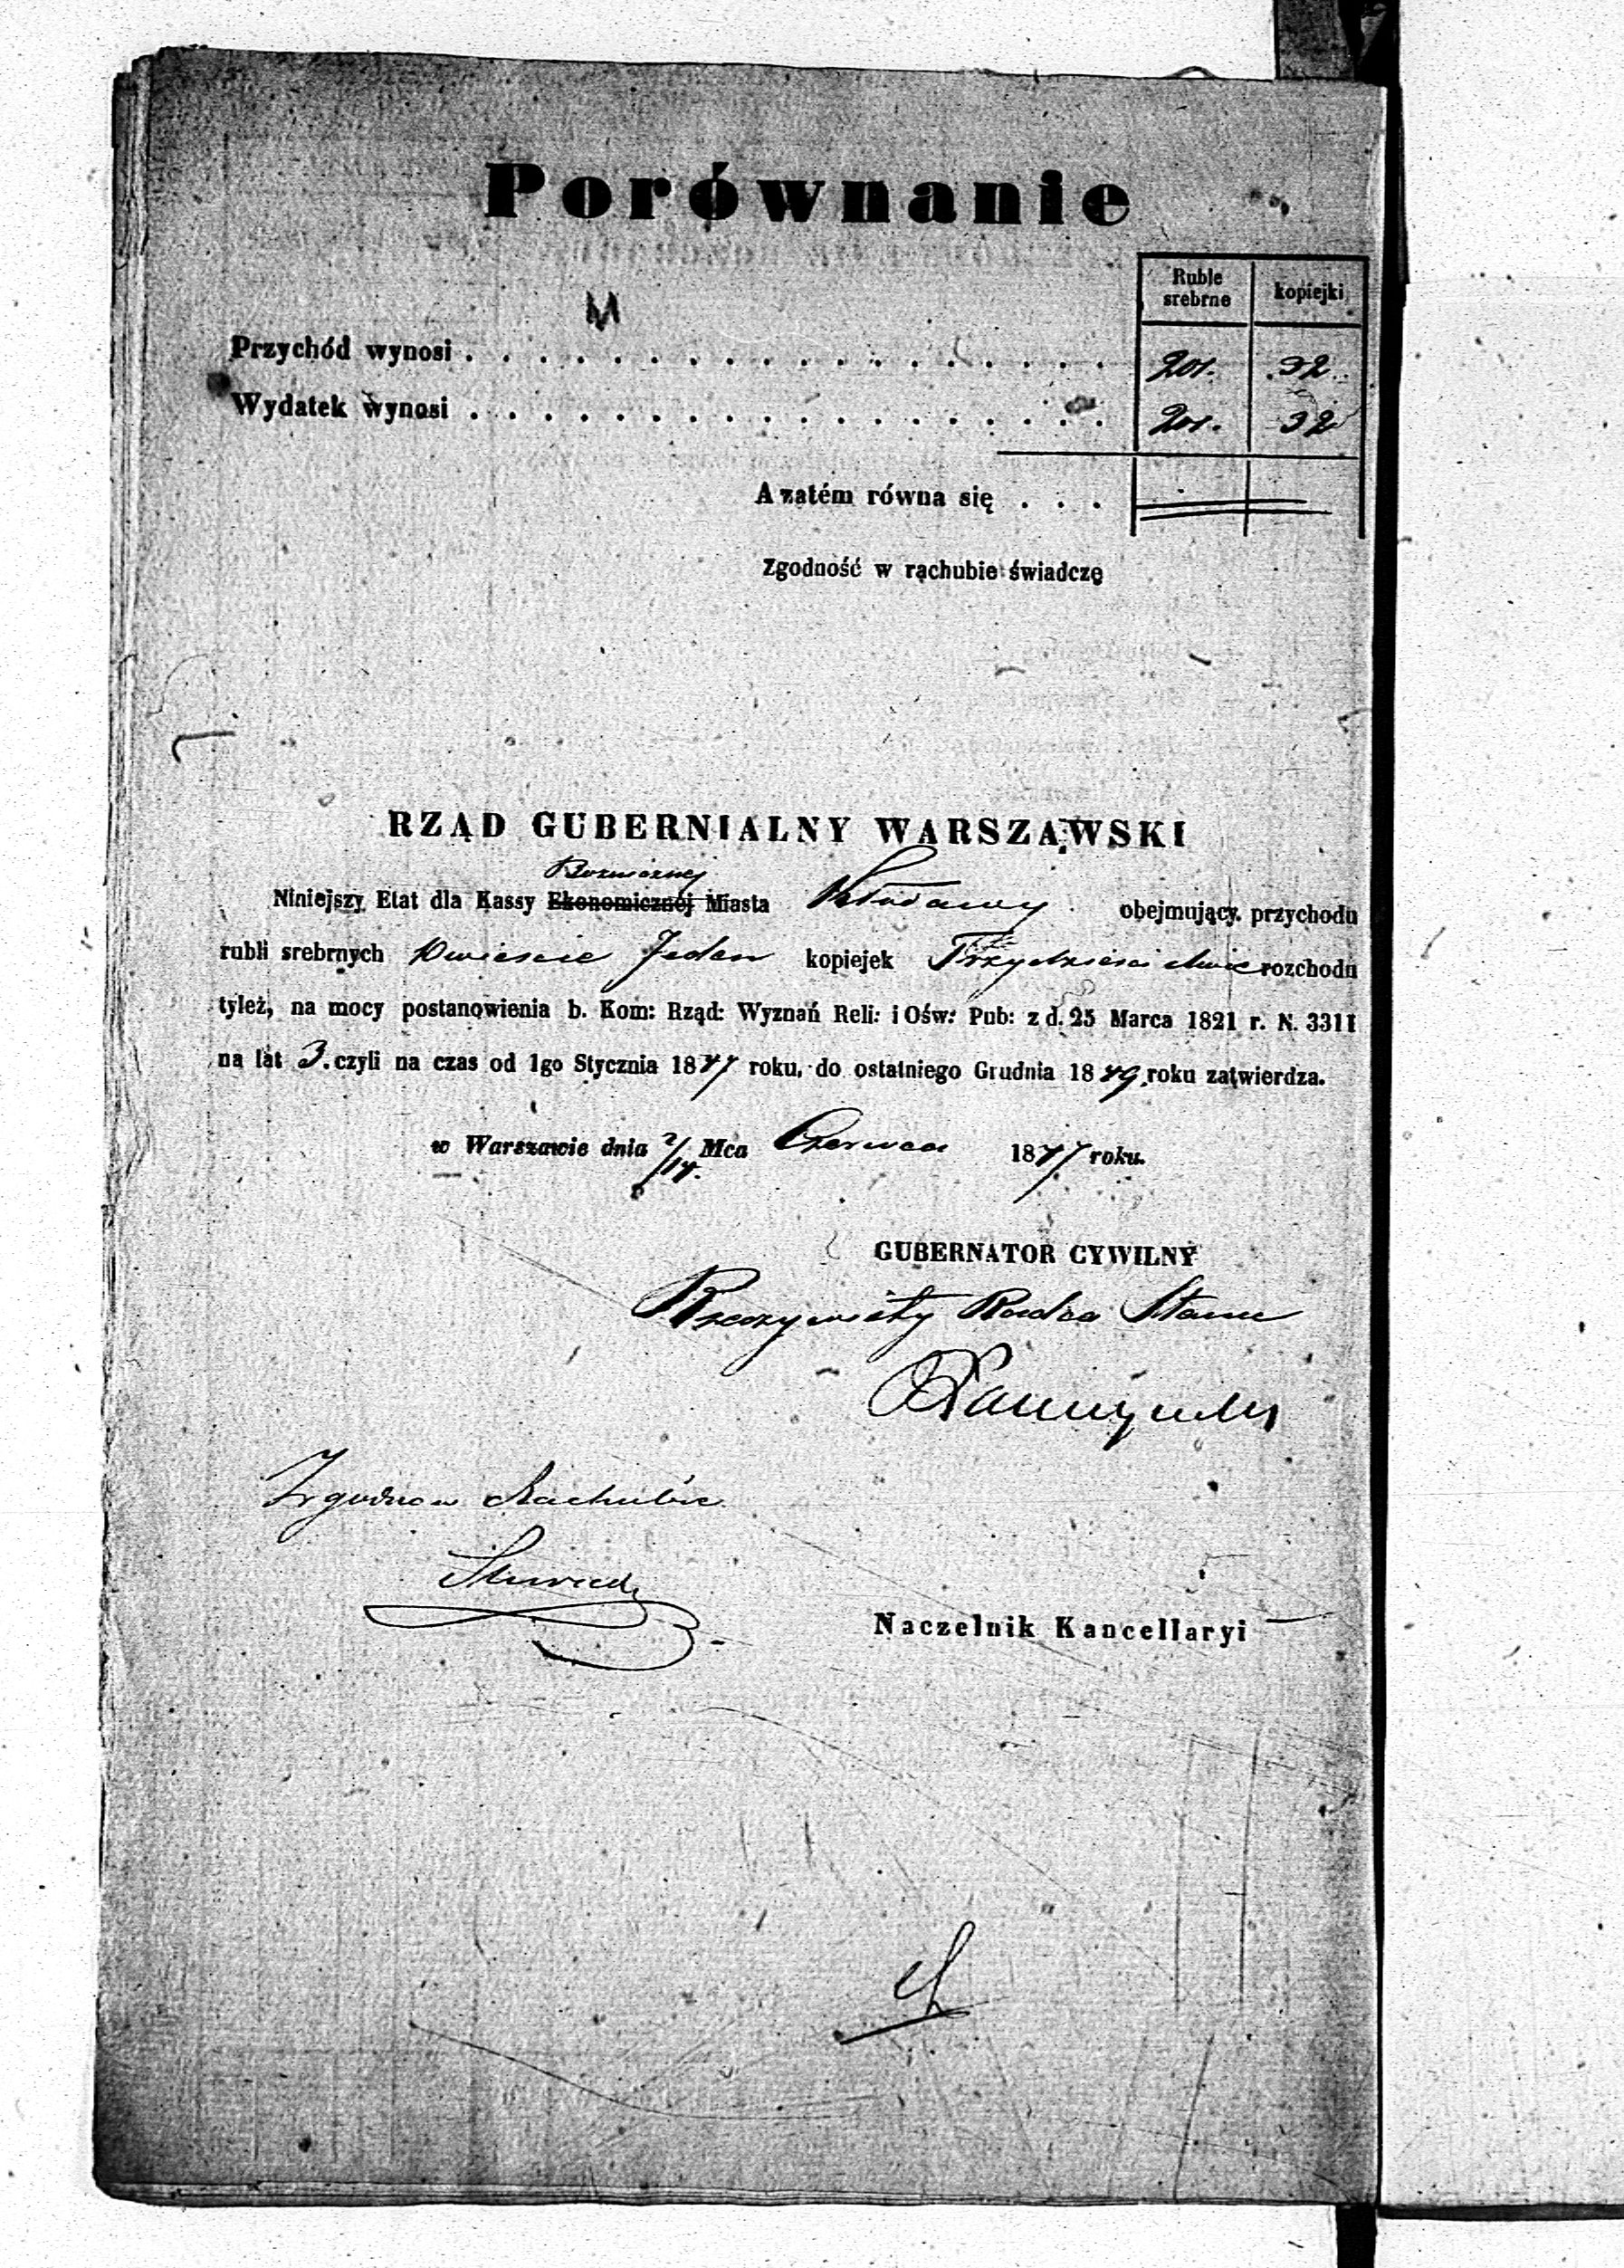 Porównanie
Ruble srebrne kopiejki
Przychód wynosi . . . . . . . . . . . . . . . . . . 201. 32
Wydatek wynosi . . . . . . . . . . . . . . . . . . 201. 32
A zatém równa się . . .
Zgodność w rachubie świadczę
RZĄD GUBERNIALNY WARSZAWSKI
Bożnicznej
Niniejszy Etat dla Kassy Ekonomicznéj Miasta Kłodawy obejmujący przychodu
rubli srebrnych Dwieście Jeden kopiejek Trzydzieści dwie rozchodu
tyleż, na mocy postanowienia b. Kom: Rząd: Wyznań Reli: i Ośw: Pub: z d. 25 Marca 1821 r. N. 3311
na lat 3. czyli na czas od 1go Stycznia 1847 roku, do ostatniego Grudnia 1849 roku zatwierdza.
w Warszawie dnia 2/14. Mca Czerwca 1847 roku.
GUBERNATOR CYWILNY
Rzeczywisty Radca Stanu
Zgodno w Rachubie
Naczelnik Kancellaryi